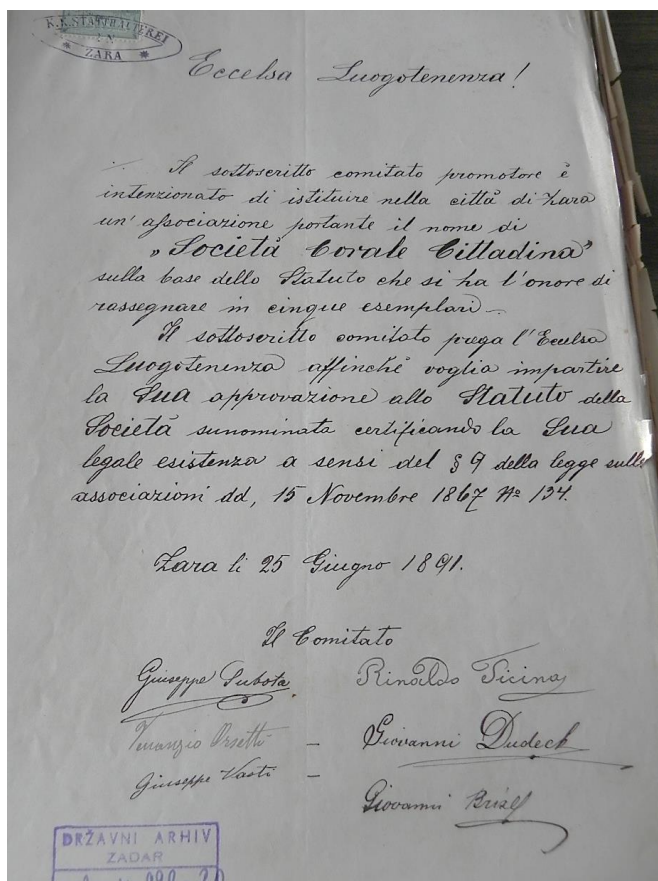 K. K. STATTHALTEREI
IN
* ZARA *
Eccelsa Luogotenenza!
Il sottoscritto comitato promotore è
intenzionato di istituire nella città di Zara
un' associazione portante il nome di
„Società Corale Cittadina"
sulla base dello Statuto che si ha l'onore di
rassegnare in cinque esemplari.
Il sottoscritto comitato prega l'Eccelsa
Luogotenenza affinchè voglia impartire
la Sua approvazione allo Statuto della
Società sunominata certificando la Sua
legale esistenza a sensi del § 9 della legge sulle
associazioni dd, 15 Novembre 1867 No 134.
Zara li 25 Giugno 1891.
Il Comitato
Giuseppe Subota
Rinaldo Ticina
Venanzio Orsetti –
Giovanni Dudeck
Giuseppe Vasti –
Giovanni
DRŽAVNI ARHIV
ZADAR